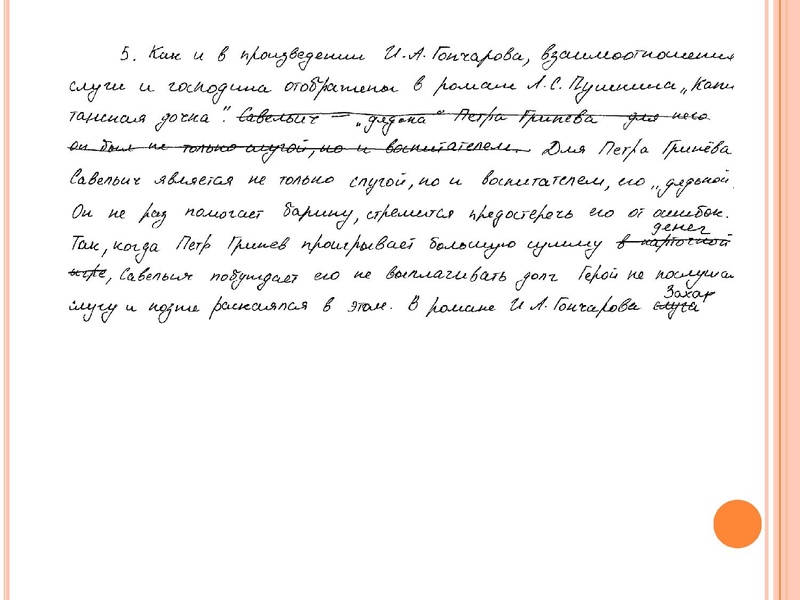 5. Как и в произведении И.А. Гончарова, взаимоотношения
слуги и господина отображены в романе А.С. Пушкина „Капи
танская дочка". Савельич – „дядька" Петра Гринева для него
он был не только слугой, но и воспитателем. Для Петра Гринёва
Савельич является не только слугой, но и воспитателем, его „дядькой.
Он не раз помогает барину, стремится предостеречь его от ошибок.
денег
Так, когда Петр Гринев проигрывает большую сумму в карточной
игре, Савельич побуждает его не выплачивать долг Герой не послушал
Захар
слугу и позже раскаялся в этом. В романе И А. Гончарова слуга